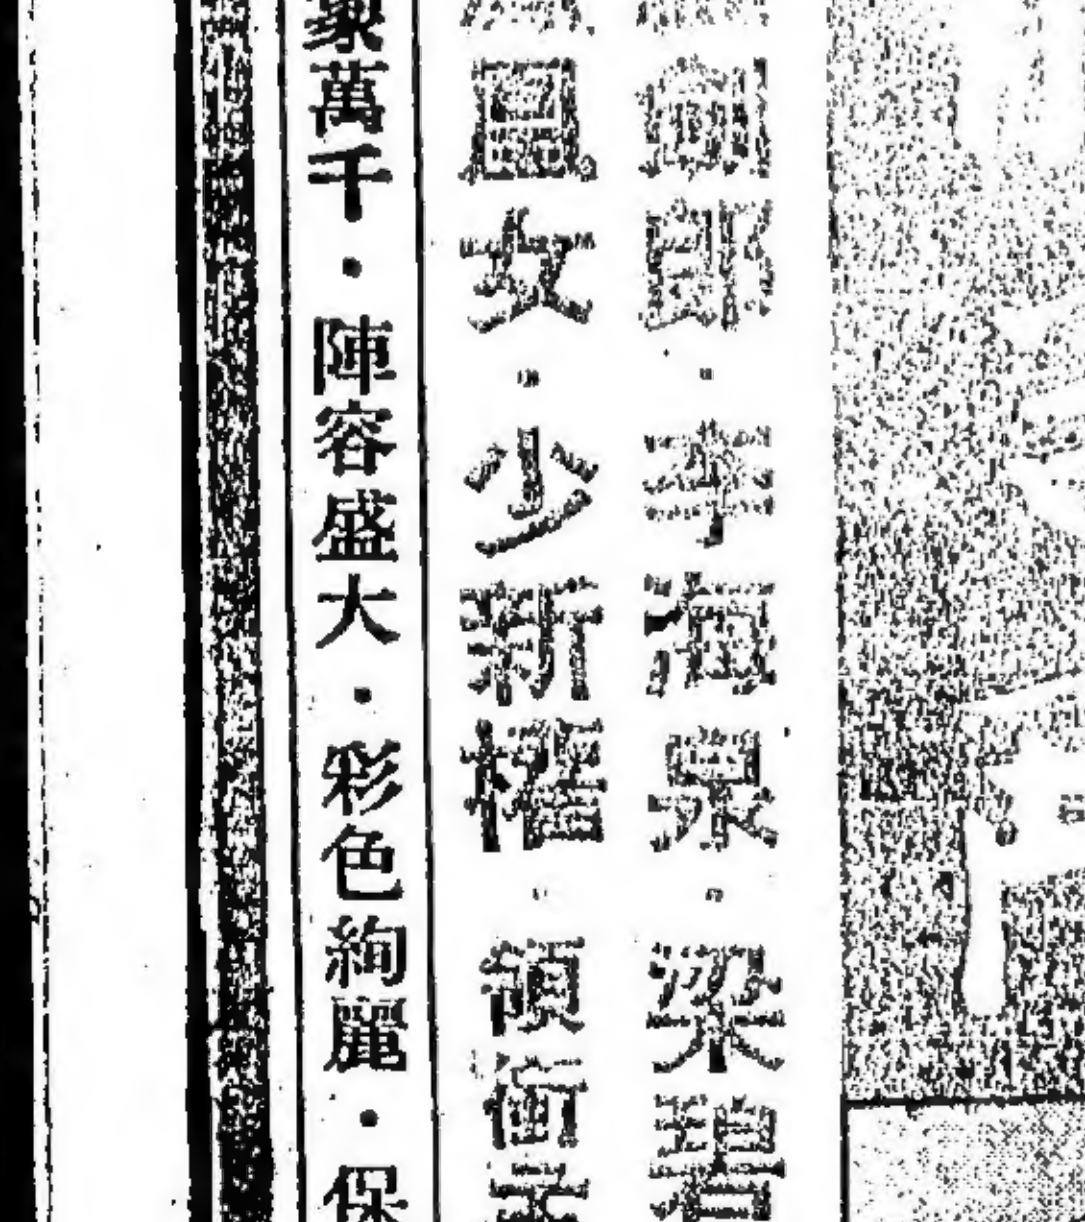 劍郎・李海泉・梁碧
凰女・少新權・領銜主
象萬千・陣容盛大・彩色絢麗・保